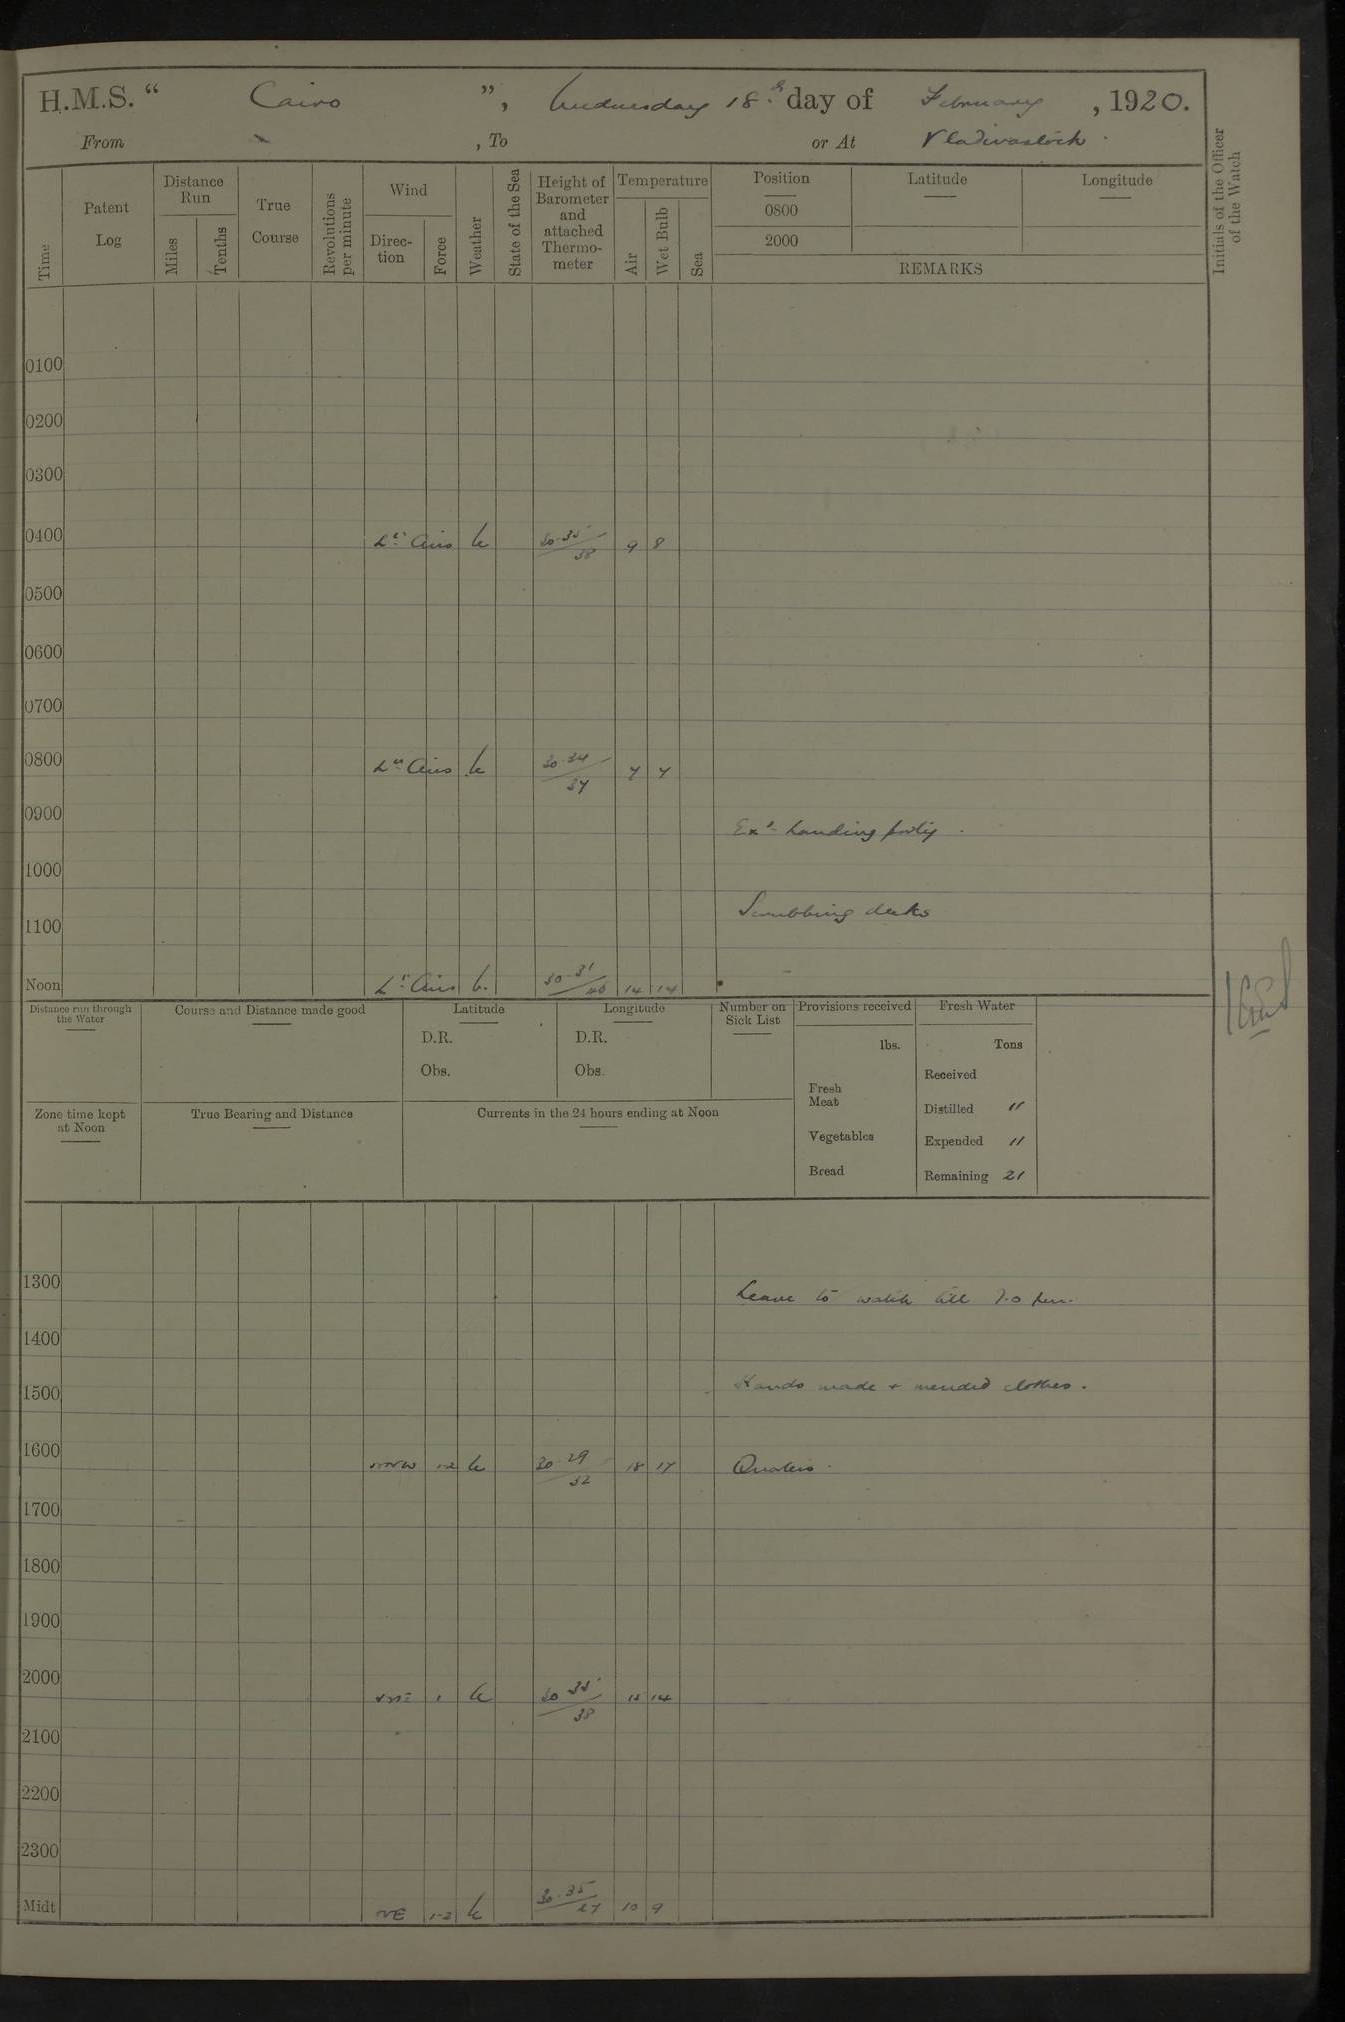 H.M.S. “ Cairo ”, Wednesday 18th day of February, 1920.
From - , To or At Vladivostock.
Time
Patent Log
Distance Run
Miles
Tenths
True Course
Revolutions per minute
Wind
Direc-tion
Force
Weather
State of the Sea
Height of Barometer and attached Thermo-meter
Temperature
Air
Wet Bulb
Sea
Position
0800
2000
Latitude
Longitude
REMARKS
Initials of the Officer of the Watch
0100
0200
0300
0400 Lt Airs b 30.35/38 9 8
0500
0600
0700
0800 Lt Airs b 30.34/37 7 7
0900 Exd Landing party.
1000
1100 Scrubbing decks
Noon Lt Airs b. 30.31/40 14 14
Distance run through the Water
Course and Distance made good
Latitude
D.R.
Obs.
Longitude
D.R.
Obs.
Number on Sick List
Provisions received
lbs.
Fresh Meat
Vegetables
Bread
Fresh Water
Tons
Received
Distilled 11
Expended 11
Remaining 21
Zone time kept at Noon
True Bearing and Distance
Currents in the 24 hours ending at Noon
1300 Leave to watch till 7.0 p.m.
1400
1500 Hands made + mended clothes.
1600 NNW 1-2 b 30.29/32 18 17 Quarters.
1700
1800
1900
2000 NNE 1 b 30.35/38 15 14
2100
2200
2300
Midt NE 1-2 b 30.35/27 10 9